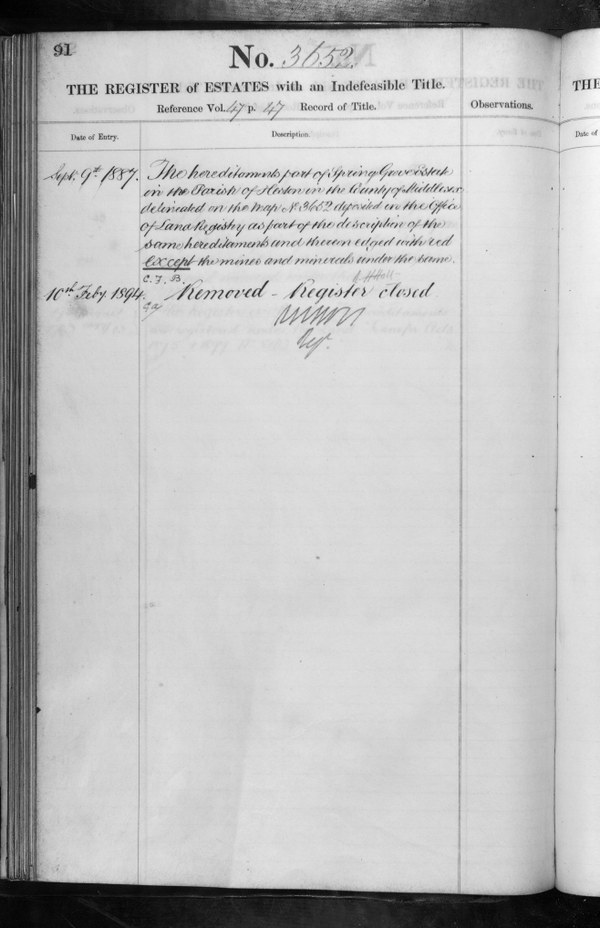 91
No. 3652.
THE REGISTER of ESTATES with an Indefeasible Title.
Reference Vol. 47 p. 47 Record of Title.
Observations.
Date of Entry.
Description.
Sept. 9th 1887.
The hereditaments part of Spring Grove Estate
in the Parish of Heston in the County of Middlesex
delineated on the Map No 3652 deposited in the Office
of Land Registry as part of the description of the
same hereditaments and thereon edged with red
except the mines and minerals under the same.
C. F. B.
10th Feby. 1894.
Removed - Register closed
Regr.
THE
Date of